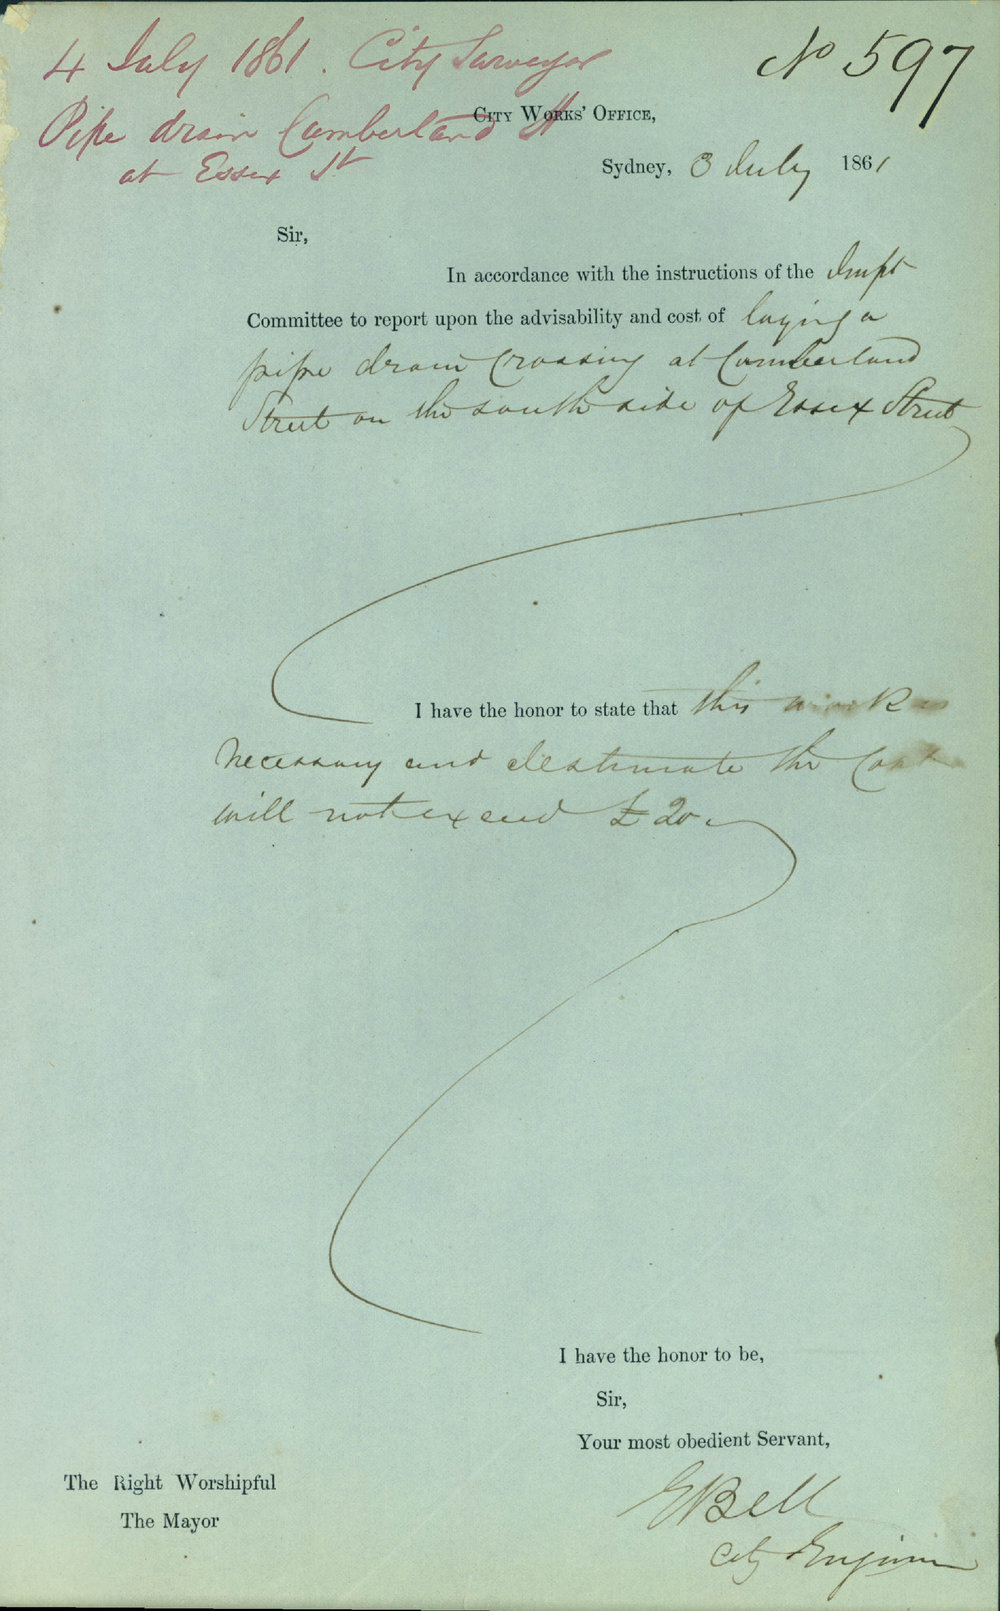 4 July 1861. City Surveyor
Pipe drain Cumberland St
at Essex St
No 597
City Works' Office,
Sydney, 3 July 1861
Sir,
In accordance with the instructions of the Impt
Committee to report upon the advisability and cost of laying a
pipe drain Crossing at Cumberland
Street on the south side of Essex Street
I have the honor to state that this work is
necessary and I estimate the Cost
will not exceed £20
I have the honor to be,
Sir,
Your most obedient Servant,
EBell
City Engineer
The Right Worshipful
The Mayor